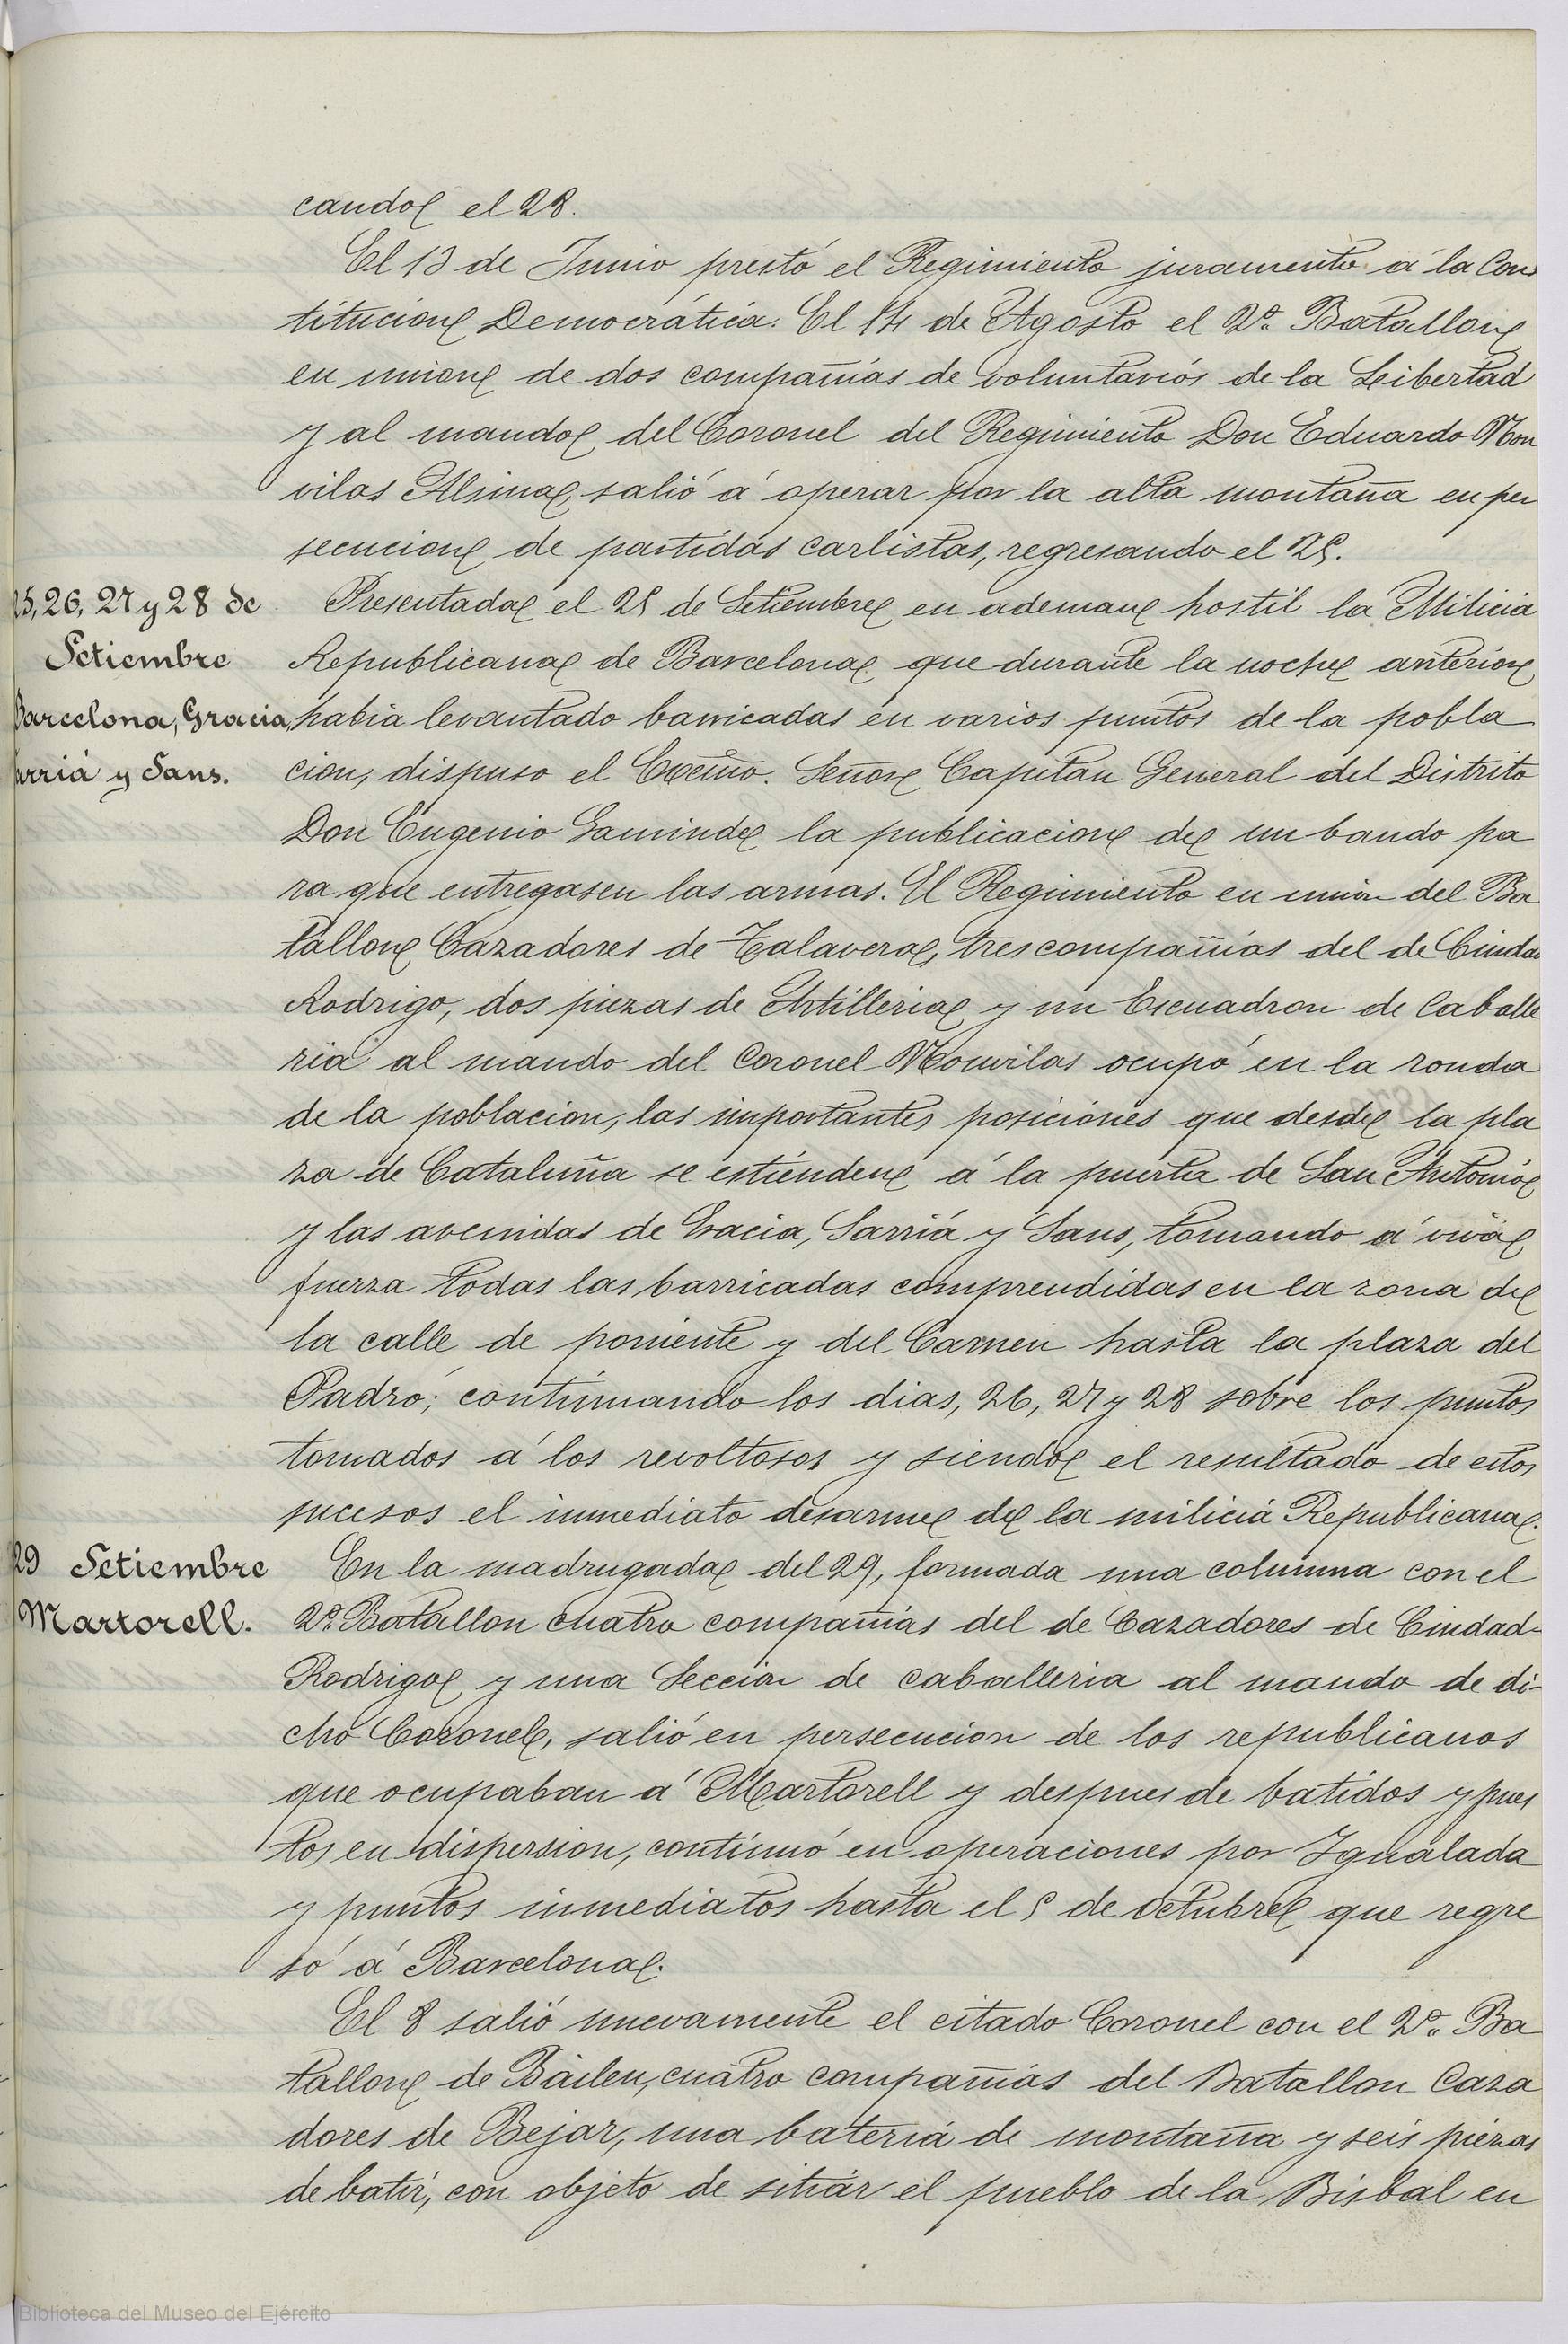 cando el 28.
El 13 de Junio prestó el Regimiento juramento á la Cons
titucion Democrática. El 14 de Agosto el 2º Batallon
en union de dos compañías de voluntarios de la Libertad
y al mando del Coronel del Regimiento Don Eduardo Mon
vilas Alsina, salió á operar por la alta montaña en per
secucion de partidas carlistas, regresando el 25.
25, 26, 27 y 28 de
Setiembre
Barcelona, Gracia,
Sarriá y Sans.
Presentada el 25 de Setiembre en ademan hostil la Milicia
Republicana de Barcelona que durante la noche anterior
habia levantado barricadas en varios puntos de la pobla
cion, dispuso el Excmo. Señor Capitan General del Distrito
Don Eugenio Gaminde la publicacion de un bando pa
ra que entregasen las armas. El Regimiento en union del Ba
tallon Cazadores de Talavera, tres compañías del de Ciudad
Rodrigo, dos piezas de Artilleria y un Escuadron de Caballe
ria al mando del Coronel Monvilas ocupó en la ronda
de la poblacion, las importantes posiciones que desde la pla
za de Cataluña se estienden á la puerta de San Antonio
y las avenidas de Gracia, Sarriá y Sans, tomando á viva
fuerza todas las barricadas comprendidas en la zona de
la calle de poniente y del Carmen hasta la plaza del
Padró; continuando los dias, 26, 27 y 28 sobre los puntos
tomados á los revoltosos y siendo el resultado de estos
sucesos el inmediato desarme de la milicia Republicana.
29 Setiembre
Martorell.
En la madrugada del 29, formada una columna con el
2º Batallon cuatro compañías del de Cazadores de Ciudad-
Rodrigo y una Seccion de caballeria al mando de di-
cho Coronel, salió en persecucion de los republicanos
que ocupaban á Martorell y despues de batidos y pues
tos en dispersion, continuó en operaciones por Igualada
y puntos inmediatos hasta el 5 de Octubre que regre
só á Barcelona.
El 8 salió nuevamente el citado Coronel con el 2º Ba
tallon de Bailen, cuatro compañías del Batallon Caza
dores de Bejar, una bateria de montaña y seis piezas
de batir, con objeto de sitiar el pueblo de la Bisbal en
Biblioteca del Museo del Ejército